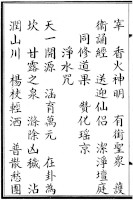 宰　香火神明　有銜聖眾　護
衛誦經　送迎仙侶　潔淨壇庭
同修道果　贊化瑤京
淨水咒
天一開源　涵育萬元　在卦為
坎　甘露之泉　滌除凶穢　沾
潤山川　楊枝輕洒　普散愁團